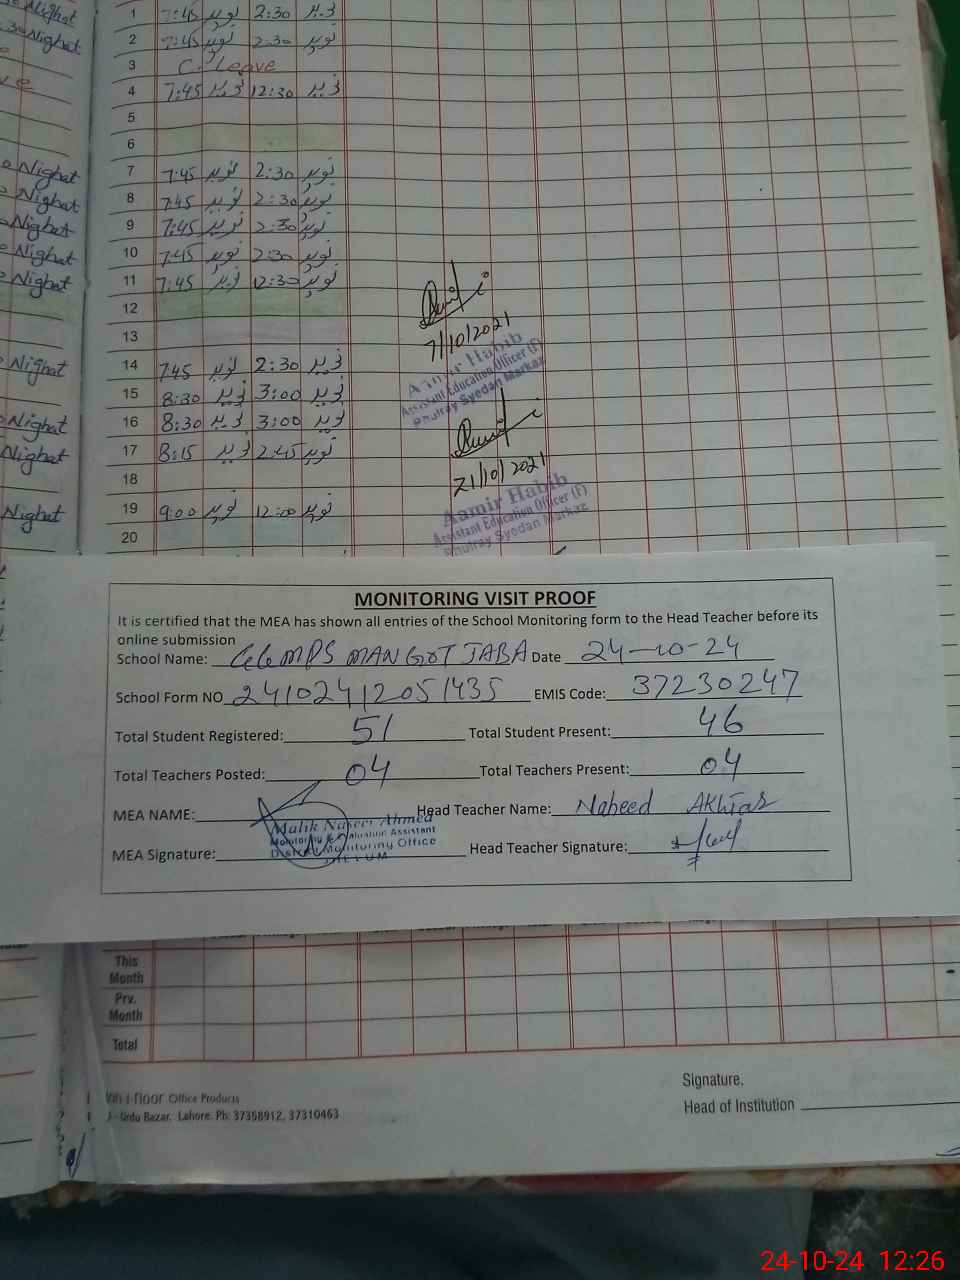 Nighat
1 7:45 2:30
30 Nighat
2 7:45 2:30
3 C. Leave
4 7:45 12:30
5
6
Nighat
7 7:45 2:30
Nighat
8 7:45 2:30
Nighat
9 7:45 2:30
Nighat
10 7:45 2:30
Nighat
11 7:45 12:30
12
13
Nighat
14 7:45 2:30
15 8:30 3:00
Nighat
16 8:30 3:00
Nighat
17 8:15 2:45
18
Nighat
19 9:00 12:00
20
7/10/2021
Aamir Habib
Assistant Education Officer (F)
Phulray Syedan Markaz
21/10/2021
Aamir Habib
Assistant Education Officer (F)
Phulray Syedan Markaz
MONITORING VISIT PROOF
It is certified that the MEA has shown all entries of the School Monitoring form to the Head Teacher before its
online submission
School Name: GGMPS MANGOT JABA Date 24-10-24
School Form NO 24102412051435 EMIS Code: 37230247
Total Student Registered: 51 Total Student Present: 46
Total Teachers Posted: 04 Total Teachers Present: 04
MEA NAME: Head Teacher Name: Naheed Akhtar
Malik Naseer Ahmed
Monitoring & Evaluation Assistant
District Monitoring Office
JHELUM
MEA Signature: Head Teacher Signature:
This
Month
Prv.
Month
Total
Office Products
Urdu Bazar, Lahore. Ph: 37358912, 37310463
Signature.
Head of Institution
24-10-24 12:26